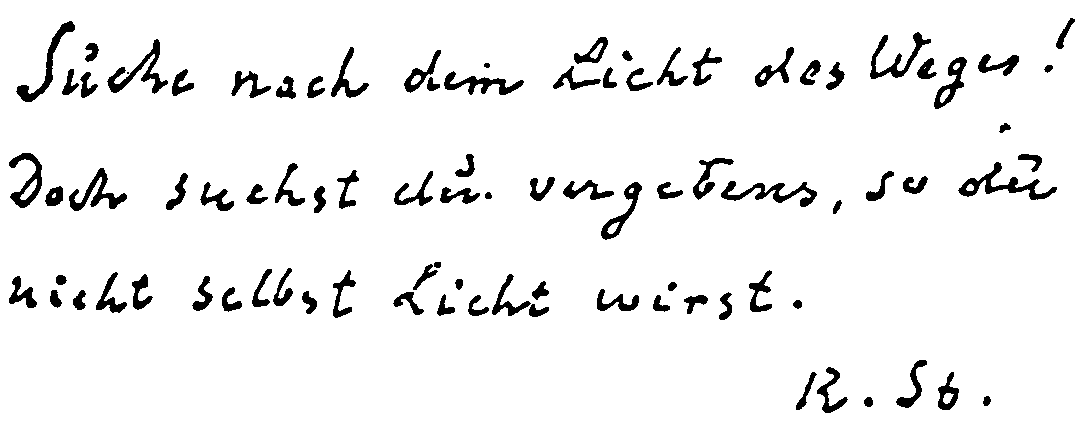 Suche nach dem Licht des Weges!
Doch suchst du vergebens, so du
nicht selbst Licht wirst.
R. St.